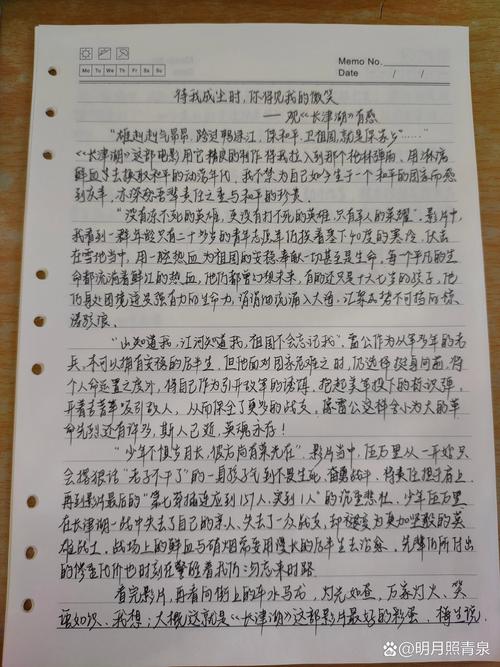 Memo No.
Mo Tu We Th Fr Sa Su
Date / /
待我成尘时,你将见我的微笑
——观《长津湖》有感
“雄赳赳气昂昂,跨过鸭绿江,保和平,卫祖国,就是保家乡……”
《长津湖》这部电影用它精良的制作将我拉入到那个枪林弹雨、用淋漓
鲜血去换取和平的动荡年代,我不禁为自己如今生于一个和平的国家而感
到庆幸,亦深感吾辈责任之重与和平的珍贵。
“没有冻不死的英雄,更没有打不死的英雄,只有军人的荣耀”。影片中,
我看到一群年轻只有二十多岁的青年志愿军仍挨着零下40度的寒冷,伏击
在雪地当中,用一腔热血为祖国的安稳奉献一切甚至是生命,每个平凡的生
命都流淌着鲜红的热血,他们都曾幻想未来,有的还只是十六七岁的孩子,他
们再处困境迸发强有力的生命力,涓涓细流涌入大海,江聚成势不可挡的惊
涛骇浪。
“山知道我,江河知道我,祖国不会忘记我”,雷公作为从军多年的老
兵,本可以拥有安稳的后半生,但他面对国家危难之时,仍选择挺身向前,将
个人命运置之度外,将自己作为引开敌军的诱饵,抱起美军投下的标识弹,
开着吉普车吸引敌人,从而保全了更多的战友,像雷公这样舍小为大的革
命先烈还有许多,斯人已逝,英魂永存!
“少年不惧岁月长,彼方尚有荣光在”,影片当中,伍万里从一开始只
会撂狠话“老子不干了”的一身孩子气到不畏生死,奋勇战斗,将责任担于肩上,
再到影片最后的“第七穿插连应到157人,实到1人”的沉重悲壮,少年伍万里
在长津湖一战中失去了自己的亲人,失去了一众战友,却被变为更加坚毅的英
雄战士,战场上的鲜血与硝烟需要用漫长的后半生去治愈,先辈们所付出
的惨重代价也时刻在警醒着我们勿忘来时路。
看完影片,再看向街上的车水马龙,灯光如昼,万家灯火、笑
语如织,我想:大概这就是《长津湖》这部影片最好的彩蛋,
@明月照青泉